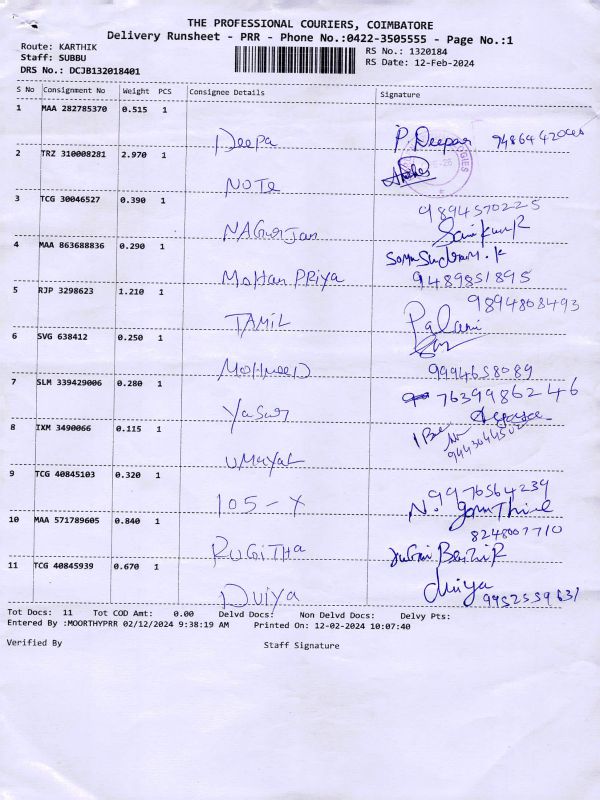 THE PROFESSIONAL COURIERS, COIMBATORE
Delivery Runsheet - PRR - Phone No.:0422-3505555 - Page No.:1
Route: KARTHIK
Staff: SUBBU
DRS No.: DCJB132018401
RS No.: 1320184
RS Date: 12-Feb-2024
S No Consignment No Weight PCS Consignee Details Signature
1 MAA 282785370 0.515 1
Deepa P. Deepa
2 TRZ 310008281 2.970 1
NOTE
3 TCG 30046527 0.390 1 9894570225
NAGURJan
4 MAA 863688836 0.290 1
MOHAN PRIYA 9489851895
5 RJP 3298623 1.210 1 9894808493
TAMIL Palani
6 SVG 638412 0.250 1
9994658089
7 SLM 339429006 0.280 1 7639986246
Yasar
8 IXM 3490066 0.115 1
UMAYAL
9 TCG 40845103 0.320 1 9976564239
105-Y N.
10 MAA 571789605 0.840 1 8248007710
RUGITHA
11 TCG 40845939 0.670 1
DIVIYA Diviya 9952559631
Tot Docs: 11 Tot COD Amt: 0.00 Delvd Docs: Non Delvd Docs: Delvy Pts:
Entered By :MOORTHYPRR 02/12/2024 9:38:19 AM Printed On: 12-02-2024 10:07:40
Verified By Staff Signature